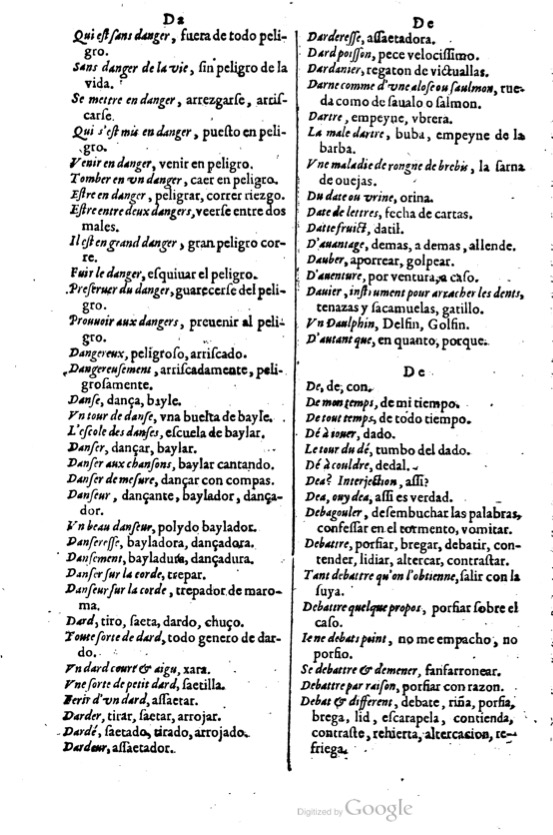 Da
Qui eſt ſans danger, fuera de todo peli-
gro.
Sans danger de la vie, ſin peligro de la
vida.
Se mettre en danger, arrezgarſe, arriſ-
carſe.
Qui s'eſt mis en danger, pueſto en peli-
gro.
Venir en danger, venir en peligro.
Tomber en vn danger, caer en peligro.
Eſtre en danger, peligrar, correr riezgo.
Eſtre entre deux dangers, veerſe entre dos
males.
Il eſt en grand danger, gran peligro cor-
re.
Fuir le danger, eſquiuar el peligro.
Preſeruer du danger, guarecerſe del peli-
gro.
Prouuoir aux dangers, preuenir al peli-
gro.
Dangereux, peligroſo, arriſcado.
Dangereuſement, arriſcadamente, peli-
groſamente.
Danſe, dança, bayle.
Vn tour de danſe, vna buelta de bayle.
L'eſcole des danſes, eſcuela de baylar.
Danſer, dançar, baylar.
Danſer aux chanſons, baylar cantando.
Danſer de meſure, dançar con compas.
Danſeur, dançante, baylador, dança-
dor.
Vn beau danſeur, polydo baylador.
Danſereſſe, bayladora, dançadora.
Danſement, bayladura, dançadura.
Danſer ſur la corde, trepar.
Danſeur ſur la corde, trepador de maro-
ma.
Dard, tiro, ſaeta, dardo, chuço.
Toute ſorte de dard, todo genero de dar-
do.
Vn dard court & aigu, xara.
Vne ſorte de petit dard, ſaetilla.
Ferir d'vn dard, aſſaetar.
Darder, tirar, ſaetar, arrojar.
Dardé, ſaetado, tirado, arrojado.
Dardeur, aſſaetador.
De
Dardereſſe, aſſaetadora.
Dard poiſſon, pece velociſſimo.
Dardanier, regaton de victuallas.
Darne comme d'vne aloſe ou ſaulmon, rue-
da como de ſaualo o ſalmon.
Dartre, empeyne, vbrera.
La male dartre, buba, empeyne de la
barba.
Vne maladie de rongne de brebis, la ſarna
de ouejas.
Du date ou vrine, orina.
Date de lettres, fecha de cartas.
Datte fruict, datil.
D'auantage, demas, a demas, allende.
Dauber, aporrear, golpear.
D'auenture, por ventura, a caſo.
Dauier, inſtrument pour arracher les dents,
tenazas y ſacamuelas, gatillo.
Vn Daulphin, Delfin, Golfin.
D'autant que, en quanto, porque.
De
De, de, con.
De mon temps, de mi tiempo.
De tout temps, de todo tiempo.
Dé à iouer, dado.
Le tour du dé, tumbo del dado.
Dé à couldre, dedal.
Dea? Interjection, aſſi?
Dea, ouy dea, aſſi es verdad.
Debagouler, deſembuchar las palabras,
confeſſar en el tormento, vomitar.
Debattre, porfiar, bregar, debatir, con-
tender, lidiar, altercar, contraſtar.
Tant debattre qu'on l'obtienne, ſalir con la
ſuya.
Debattre quelque propos, porfiar ſobre el
caſo.
Ie ne debats point, no me empacho, no
porfio.
Se debattre & demener, fanfarronear.
Debattre par raiſon, porfiar con razon.
Debat & different, debate, riña, porfia,
brega, lid, eſcarapela, contienda,
contraſte, rehierta, altercacion, re-
friega.
Digitized by Google